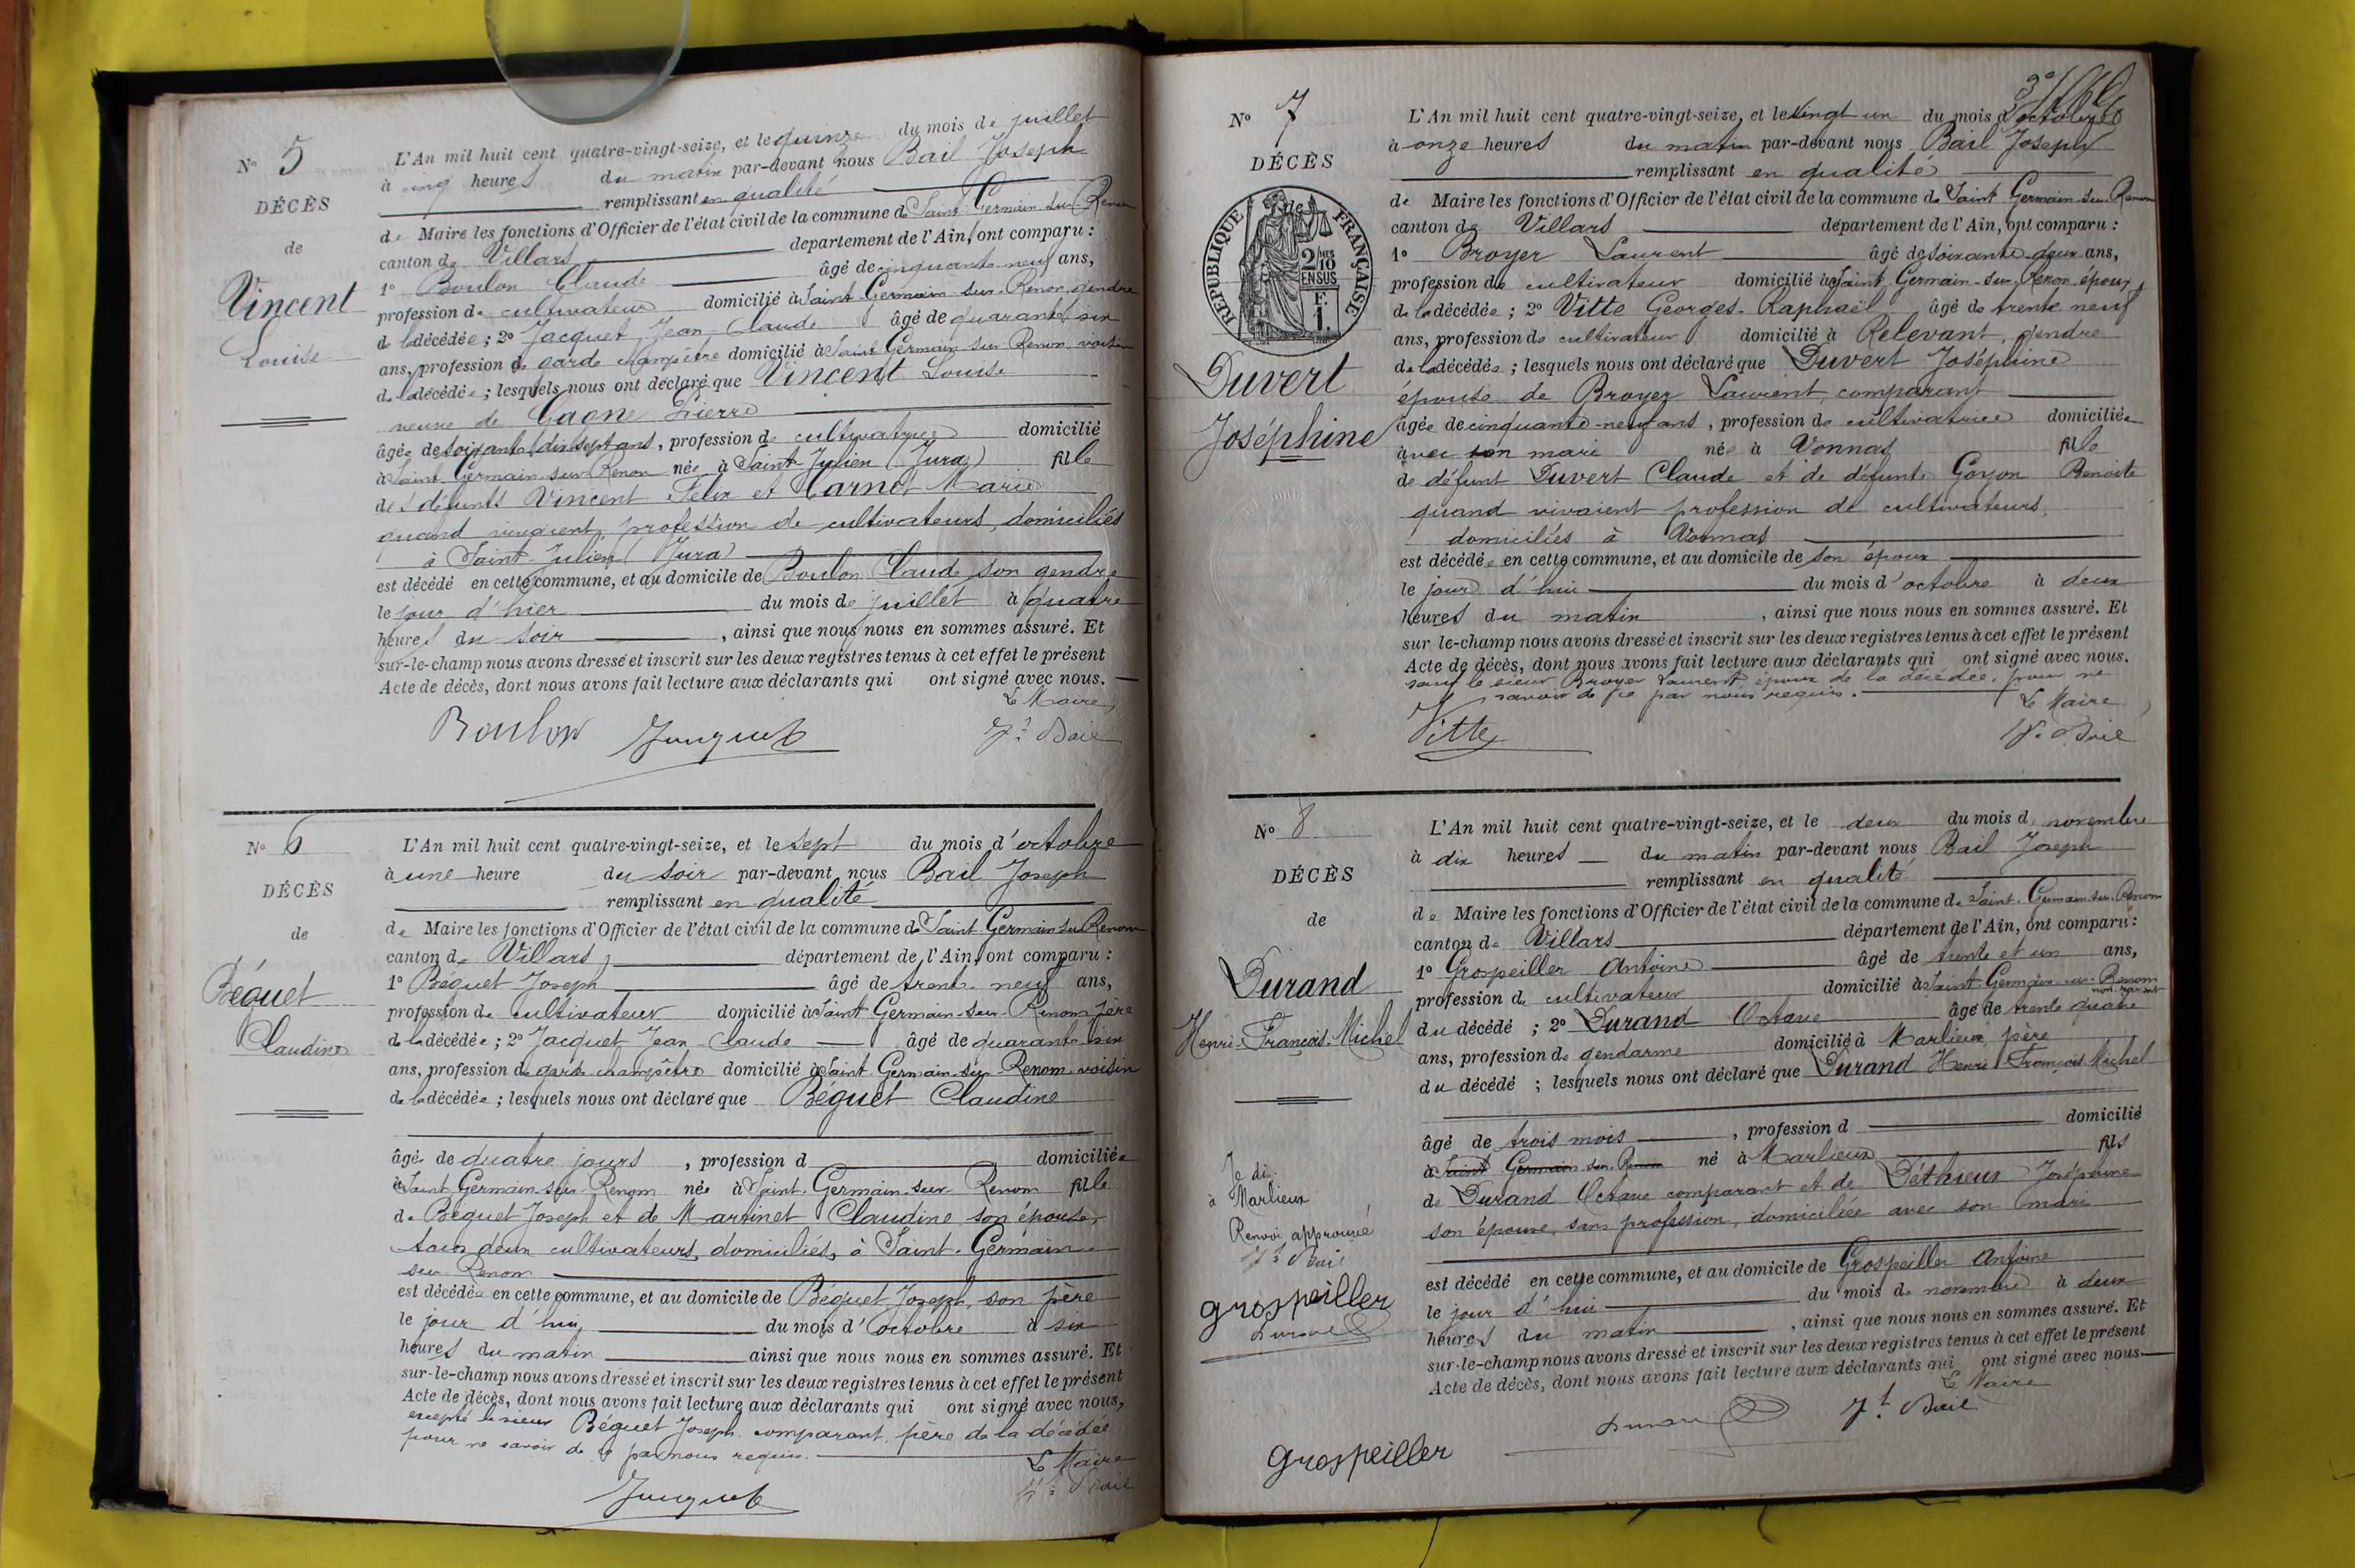 N° 5
DÉCÈS
de
Vincent
Louise
L'An mil huit cent quatre-vingt-seize, et le quinze du mois de juillet
à cinq heures du matin par-devant nous Bail Joseph
remplissant en qualité
de Maire les fonctions d'Officier de l'état civil de la commune de Saint-Germain-sur-Renon
canton de Villars département de l'Ain, ont comparu :
1° Boulon Claude âgé de cinquante-neuf ans,
profession de cultivateur domicilié à Saint-Germain-sur-Renon, gendre
de la décédée ; 2° Jacquet Jean-Claude âgé de quarante-six
ans, profession de garde champêtre domicilié à Saint-Germain-sur-Renon, voisin
de la décédée ; lesquels nous ont déclaré que Vincent Louise
veuve de Gagne Pierre
âgée de soixante-dix-sept ans, profession de cultivatrice domicilié
à Saint-Germain-sur-Renon née à Saint-Julien (Jura) fille
des défunts Vincent Félix et Carnot Marie
quand vivaient, profession de cultivateurs, domiciliés
à Saint-Julien (Jura)
est décédé en cette commune, et au domicile de Boulon Claude son gendre
le jour d'hier du mois de juillet à quatre
heures du soir , ainsi que nous nous en sommes assuré. Et
sur-le-champ nous avons dressé et inscrit sur les deux registres tenus à cet effet le présent
Acte de décès, dont nous avons fait lecture aux déclarants qui ont signé avec nous.
Le Maire,
Boulon Jacquet Jh Bail
N° 6
DÉCÈS
de
Béguet
Claudine
L'An mil huit cent quatre-vingt-seize, et le sept du mois d'octobre
à une heure du soir par-devant nous Bail Joseph
remplissant en qualité
de Maire les fonctions d'Officier de l'état civil de la commune de Saint-Germain-sur-Renom
canton de Villars département de l'Ain, ont comparu :
1° Béguet Joseph âgé de trente-neuf ans,
profession de cultivateur domicilié à Saint-Germain-sur-Renom père
de la décédée ; 2° Jacquet Jean-Claude âgé de quarante-six
ans, profession de garde champêtre domicilié à Saint-Germain-sur-Renom voisin
de la décédée ; lesquels nous ont déclaré que Béguet Claudine
âgée de quatre jours , profession d domiciliée
à Saint-Germain-sur-Renom née à Saint-Germain-sur-Renom fille
de Béguet Joseph et de Martinet Claudine son épouse,
tous deux cultivateurs, domiciliés, à Saint-Germain
sur Renom
est décédée en cette commune, et au domicile de Béguet Joseph, son père
le jour d'hui, du mois d'octobre à six
heures du matin ainsi que nous nous en sommes assuré. Et
sur-le-champ nous avons dressé et inscrit sur les deux registres tenus à cet effet le présent
Acte de décès, dont nous avons fait lecture aux déclarants qui ont signé avec nous,
excepté le sieur Béguet Joseph comparant, père de la décédée
pour ne savoir de ce par nous requis.
Le Maire
Jacquet Jh Bail
N° 7
DÉCÈS
de
RÉPUBLIQUE FRANÇAISE
2/10 MES
EN SUS
F.
1.
Duvert
Joséphine
L'An mil huit cent quatre-vingt-seize, et le vingt un du mois d'octobre
à onze heures du matin par-devant nous Bail Joseph
remplissant en qualité
de Maire les fonctions d'Officier de l'état civil de la commune de Saint Germain-sur-Renom
canton de Villars département de l'Ain, ont comparu :
1° Broyer Laurent âgé de soixante-deux ans,
profession de cultivateur domicilié à Saint-Germain-sur-Renon, époux
de la décédée ; 2° Vitte Georges-Raphaël âgé de trente neuf
ans, profession de cultivateur domicilié à Relevant, gendre
de la décédée ; lesquels nous ont déclaré que Duvert Joséphine
épouse de Broyer Laurent, comparant
âgée de cinquante-neuf ans , profession de cultivatrice domiciliée
avec son mari née à Vonnas fille
de défunt Duvert Claude et de défunte Goyon Benoite
quand vivaient profession de cultivateurs,
domiciliés à Vonnas
est décédée en cette commune, et au domicile de son époux
le jour d'hui du mois d'octobre à deux
heures du matin , ainsi que nous nous en sommes assuré. Et
sur-le-champ nous avons dressé et inscrit sur les deux registres tenus à cet effet le présent
Acte de décès, dont nous avons fait lecture aux déclarants qui ont signé avec nous.
sauf le sieur Broyer Laurent, époux de la décédée, pour ne
savoir de ce par nous requis.
Le Maire
Vitte Jh Bail
N° 8
DÉCÈS
de
Durand
Henri-François-Michel
Je dis
à Marlieux
Renvoi approuvé
Jh Bail
grospeiller
Durand
L'An mil huit cent quatre-vingt-seize, et le deux du mois de novembre
à dix heures du matin par-devant nous Bail Joseph
remplissant en qualité
de Maire les fonctions d'Officier de l'état civil de la commune de Saint-Germain-sur-Renom
canton de Villars département de l'Ain, ont comparu :
1° Grospeiller Antoine âgé de trente et un ans,
profession de cultivateur domicilié à Saint-Germain-sur-Renom
non parent
du décédé ; 2° Durand Octave âgé de trente quatre
ans, profession de gendarme domicilié à Marlieux, père
du décédé ; lesquels nous ont déclaré que Durand Henri François Michel
âgé de trois mois , profession d domicilié
à Saint Germain-sur-Renom né à Marlieux fils
de Durand Octave comparant et de Déthieux Joséphine
son épouse, sans profession, domiciliée avec son mari
est décédé en cette commune, et au domicile de Grospeiller Antoine
le jour d'hui du mois de novembre à deux
heures du matin , ainsi que nous nous en sommes assuré. Et
sur-le-champ nous avons dressé et inscrit sur les deux registres tenus à cet effet le présent
Acte de décès, dont nous avons fait lecture aux déclarants qui ont signé avec nous
Le Maire
Durand Jh Bail
grospeiller